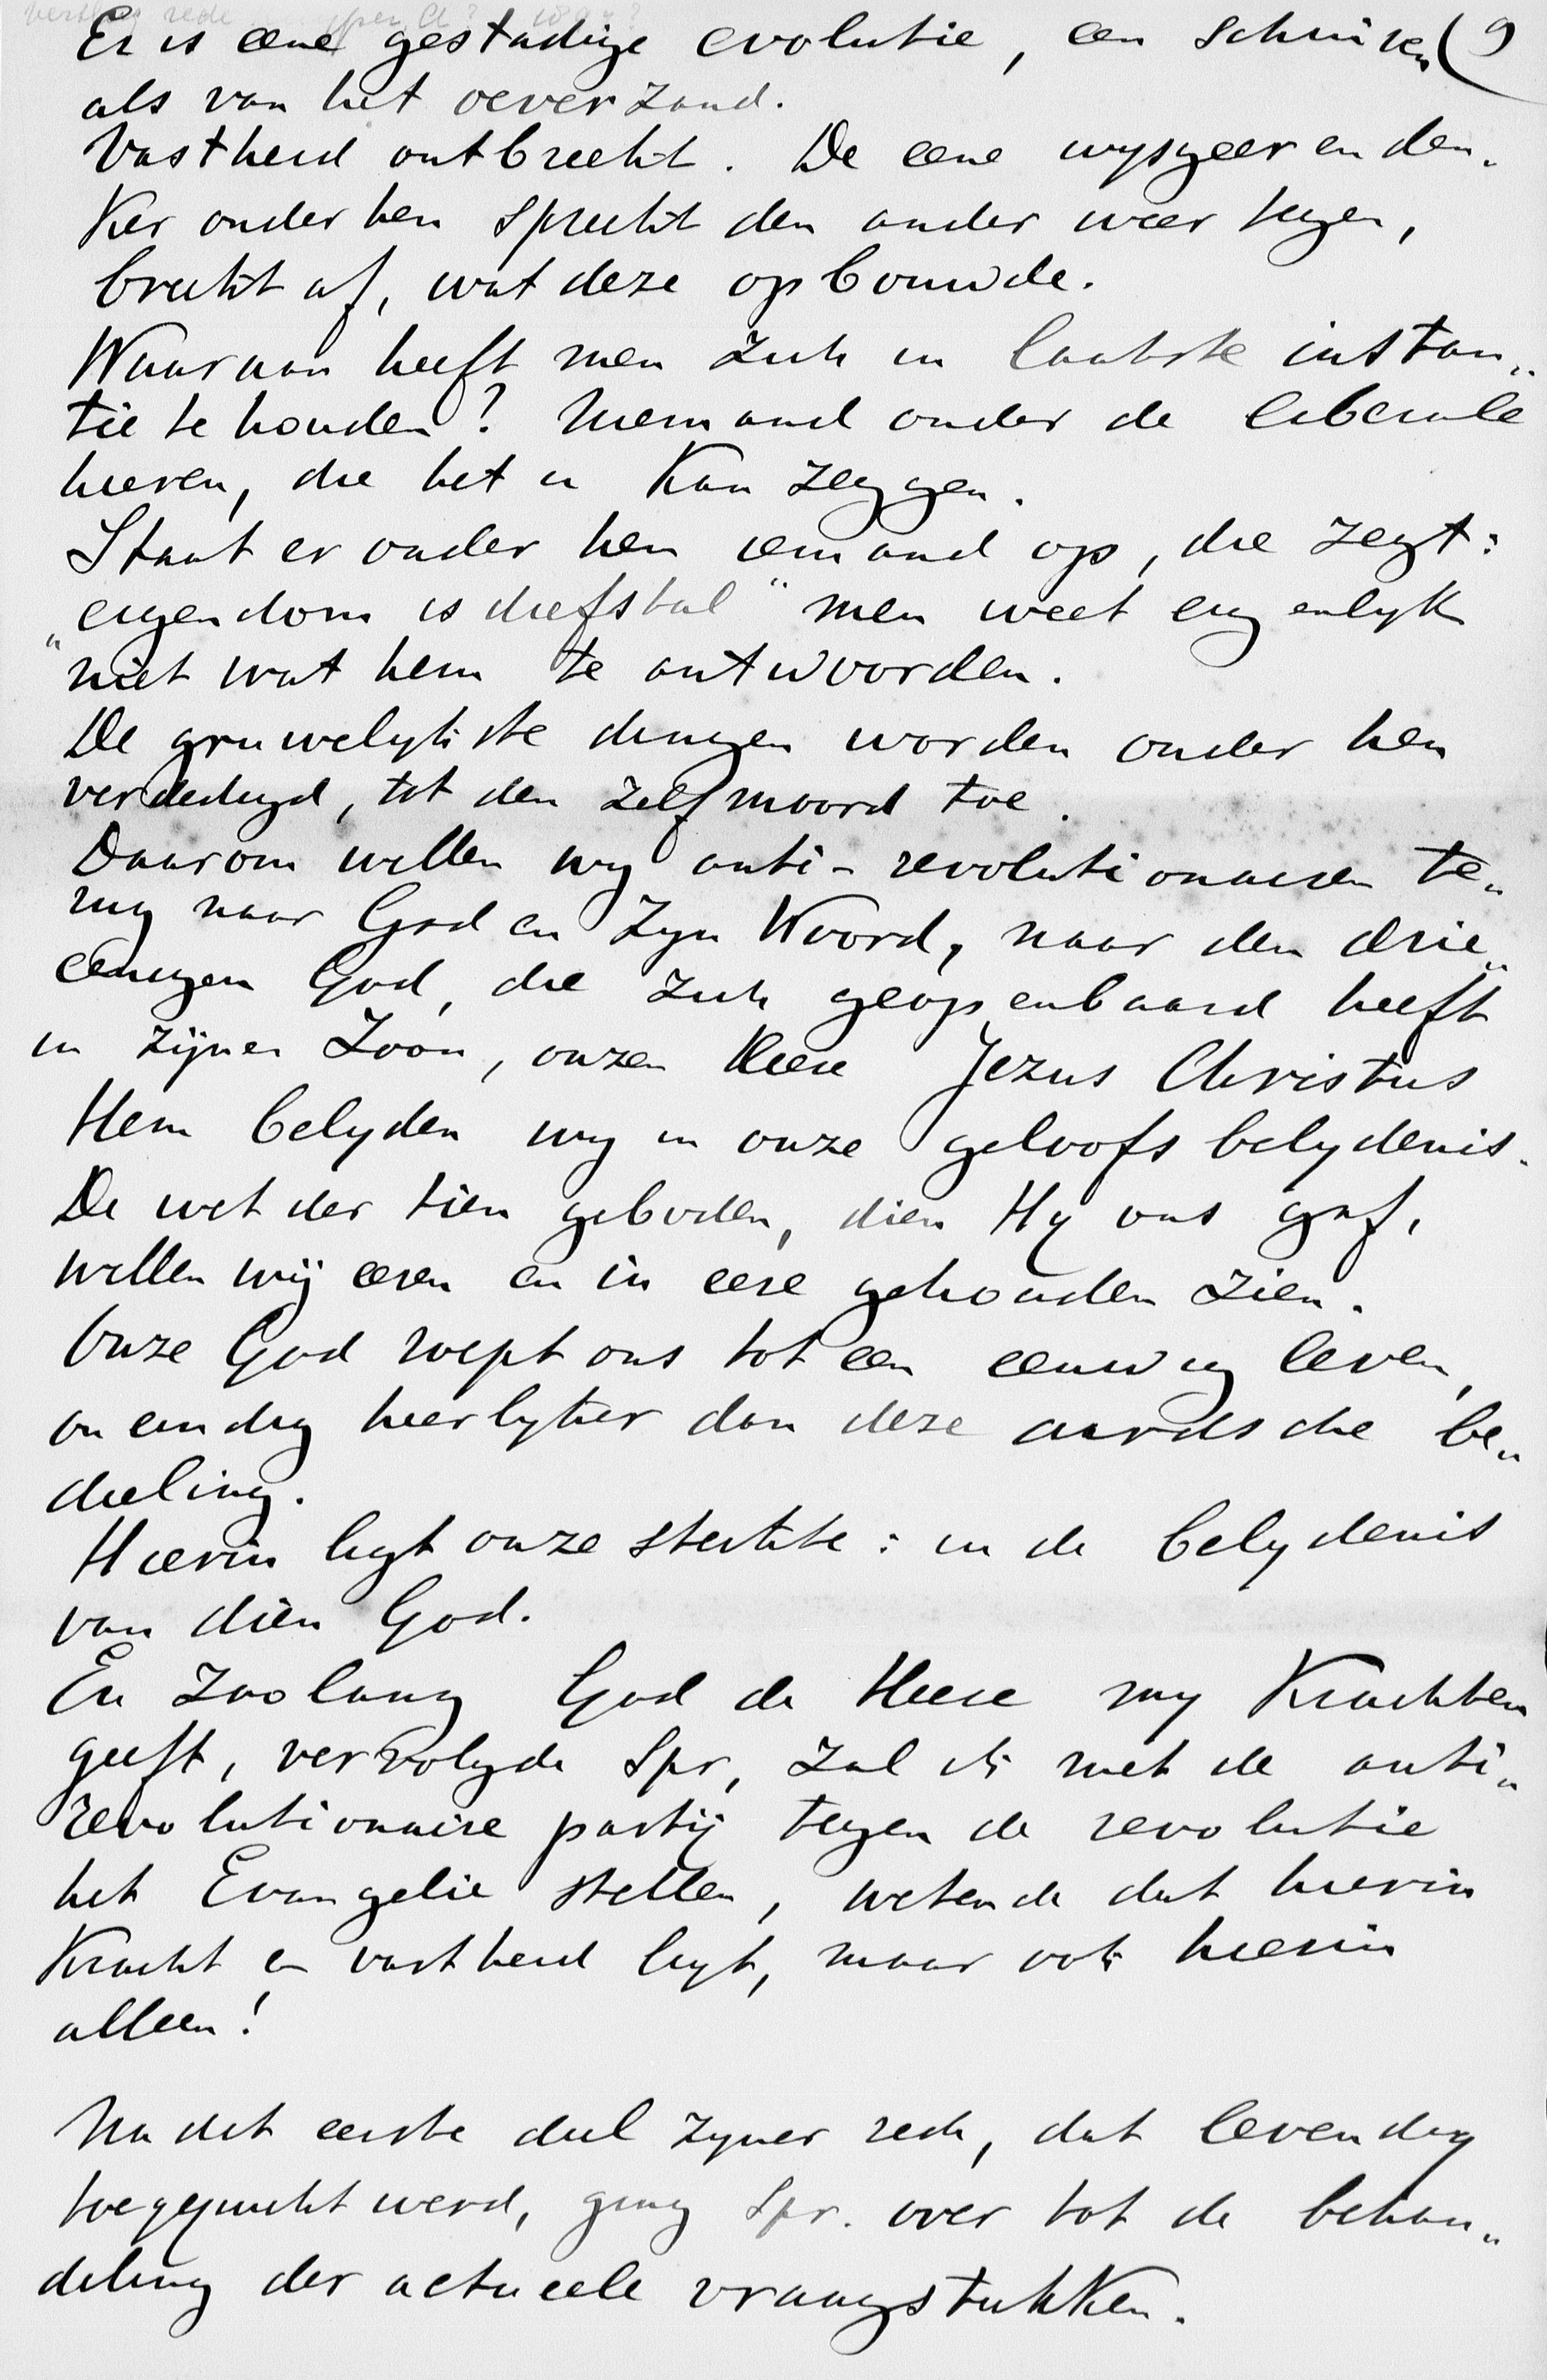 Er is eene gestadige evolutie, een schuiven (9
als van het oeverzand.
Vastheid ontbreekt. De eene wysgeer en den„
ker onder hen spreekt den ander weer tegen,
breekt af, wat deze opbouwde.
Waaraan heeft men zich in laatste instan„
tie te houden? Niemand onder de liberale
heeren, die het u kan zeggen.
Staat er onder hen iemand op, die zegt:
„eigendom is diefstal" men weet eigenlyk
niet wat hem te antwoorden.
De gruwelykste dingen worden onder hen
verdedigd, tot den zelfmoord toe.
Daarom willen wy anti-revolutionairen te„
rug naar God en Zyn Woord, naar den drie„
eenigen God, die zich geopenbaard heeft
in zijnen Zoon, onzen Heere Jezus Christus
Hem belyden wy in onze geloofsbelydenis.
De wet der tien geboden, dien Hy ons gaf,
willen wij eeren en in eere gehouden zien.
Onze God roept ons tot een eeuwig leven,
oneindig heerlyker dan deze aardsche be„
deeling.
Hierin ligt onze sterkte: in de belydenis
van dien God.
En zoolang God de Heere my krachten
geeft, vervolgde Spr, zal ik met de anti„
revolutionaire partij tegen de revolutie
het Evangelie stellen, wetende dat hierin
kracht en vastheid ligt, maar ook hierin
alleen!
Na dit eerste deel zyner rede, dat levendig
toegejuicht werd, ging Spr. over tot de behan„
deling der actueele vraagstukken.